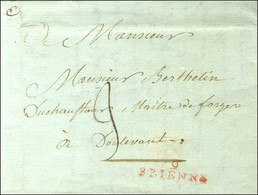 A Monsieur
Monsieur Berthelin
Duchauffour Maitre de forges
à Doulevant
9
BRIENNE